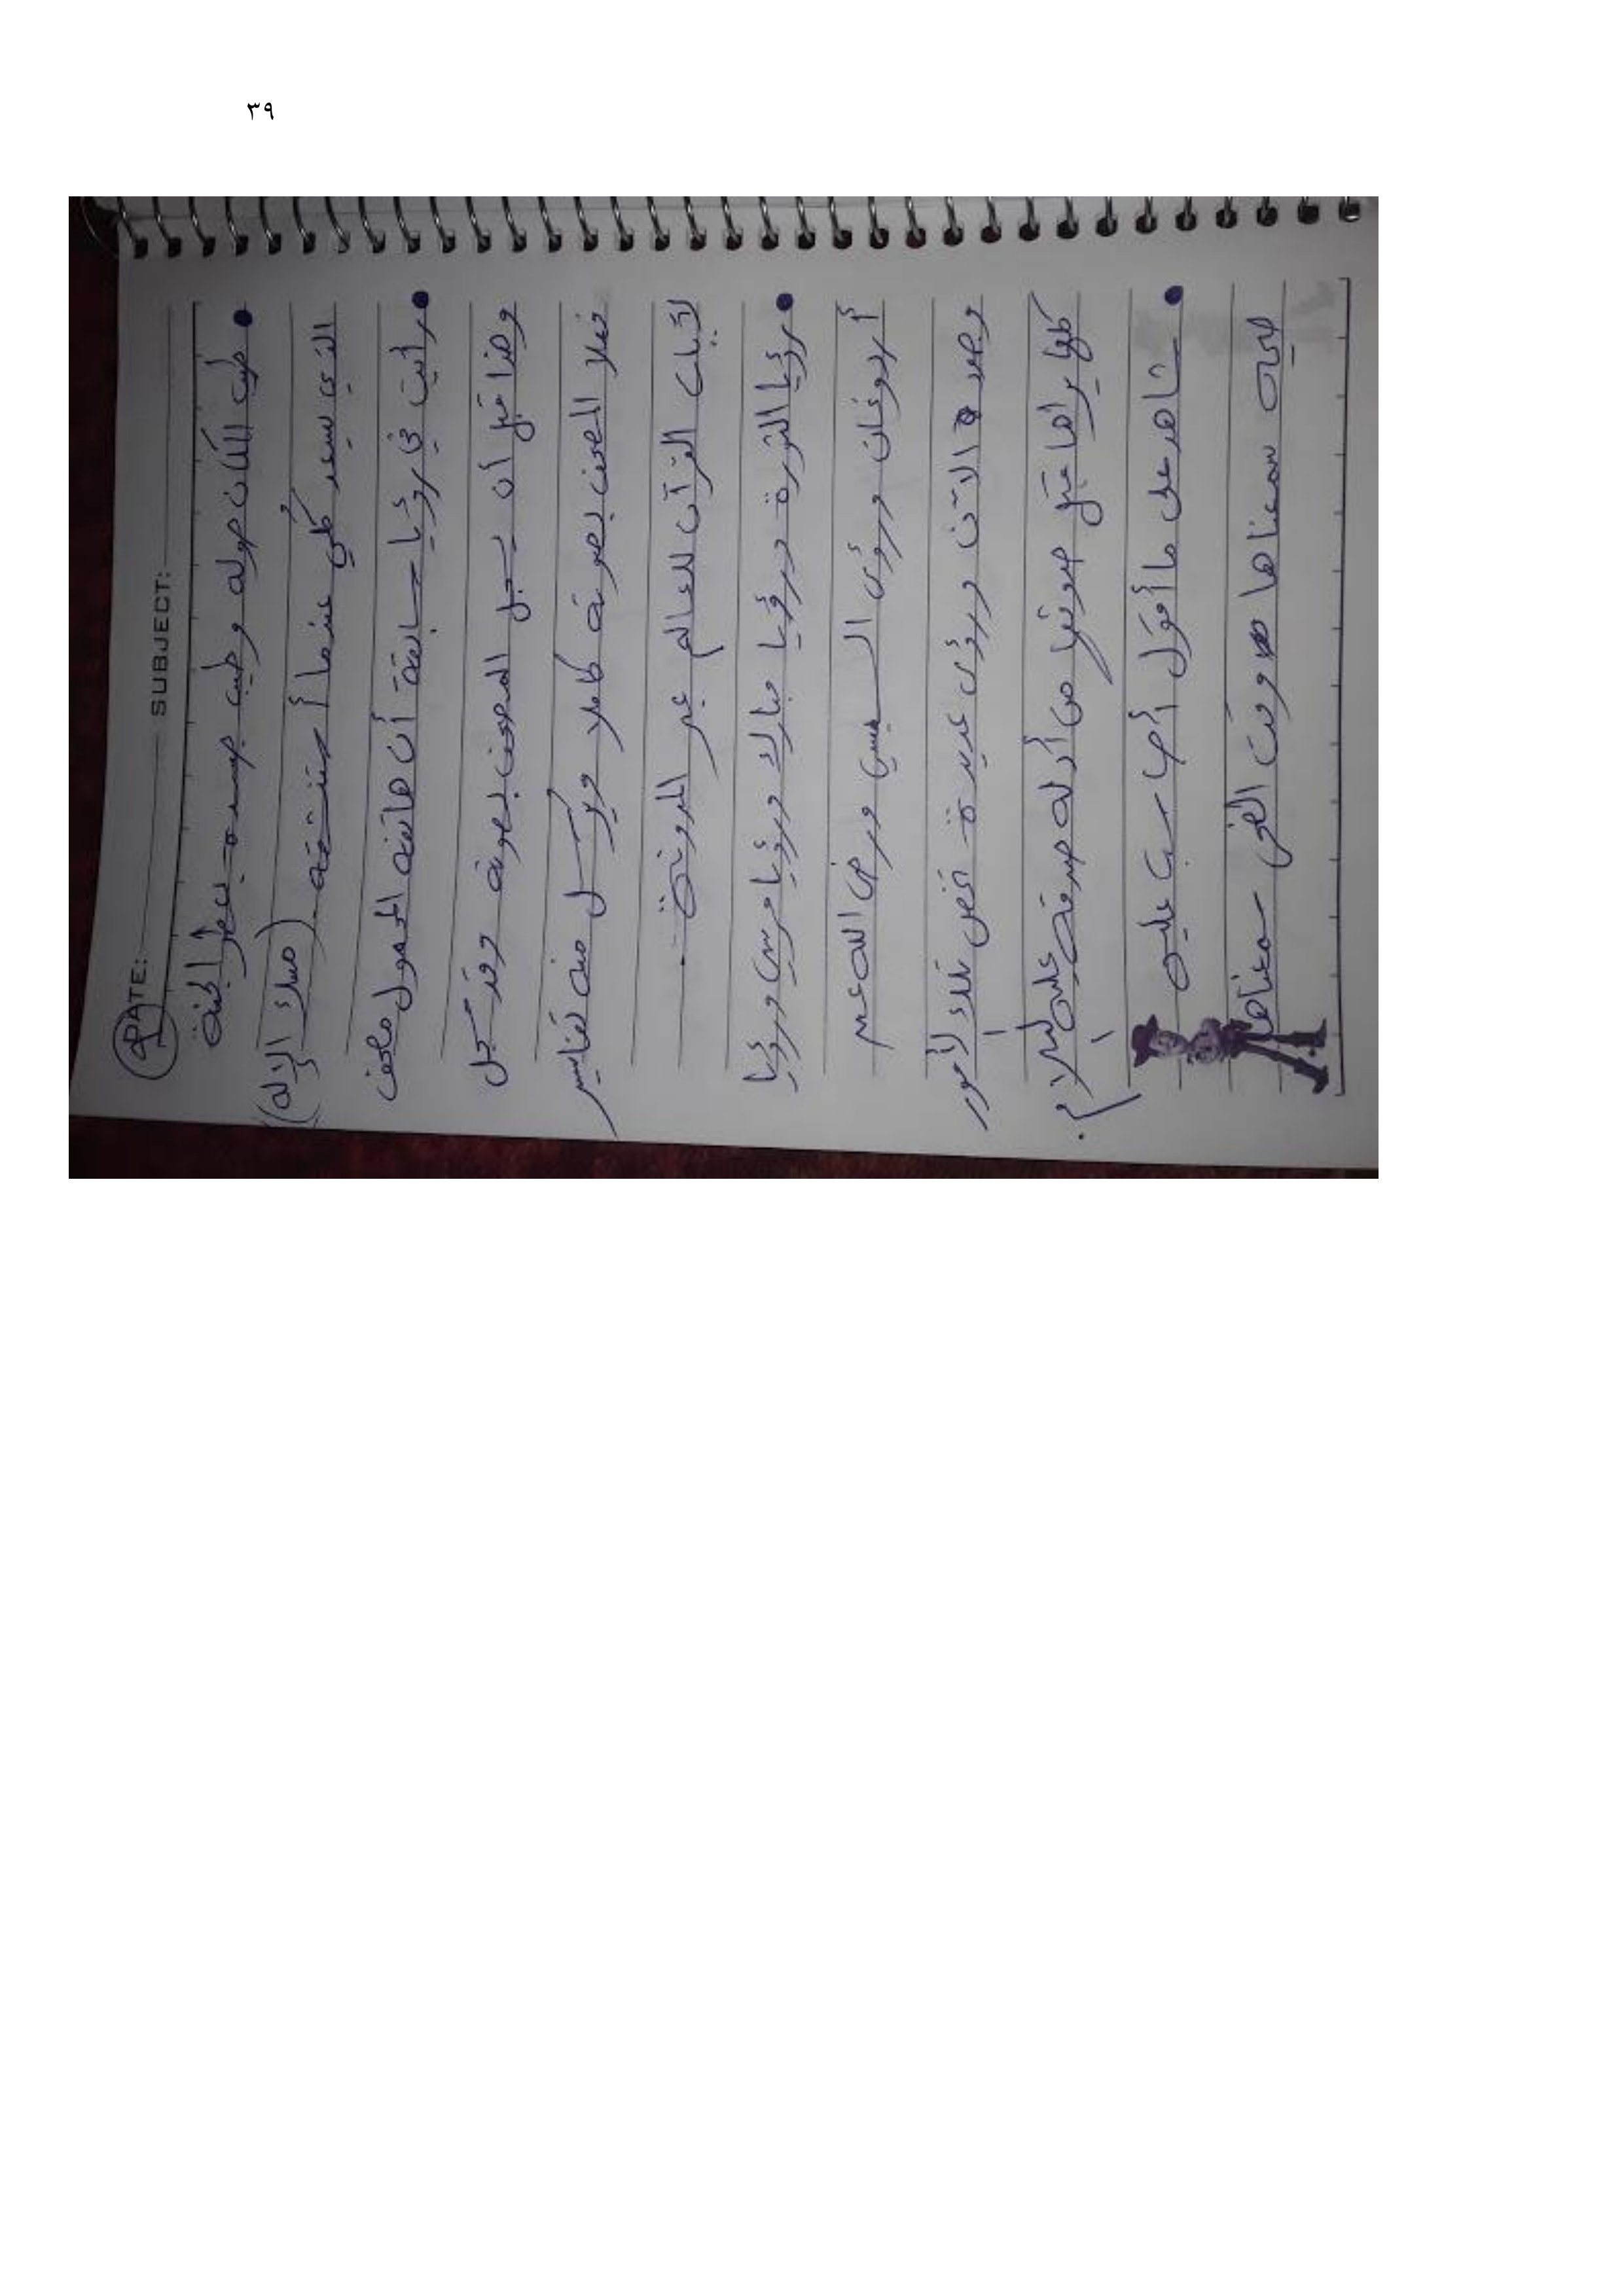 ٣٩
DATE: SUBJECT:
طيب المكان حوله وطيب جسده بعطر الجنة
الذى يسعد كلي عندما أستنشقه (مسك الإله)
رأيت في رؤيا سابقة أن هاتفه المحمول مصحف
وهذا قبل أن يسجل المصحف بصوته وقد سجل
فعلا المصحف بصوته كاملا ويرسل منه تفاسير
لآيات القرآن للعالم عبر المدونة
رؤيا الثورة ورؤيا مبارك ورؤيا مرسى ورؤيا
أردوغان ورؤى السيسى ورضى الله عنهم
الآن ورؤى عديدة تخص تلك الأمور
كلها يراها قبل حدوثها من أدلة صدقه عليه السلام
شاهد على ما أقول أحاسب عليه
سمعناها وقت التى سمعناها